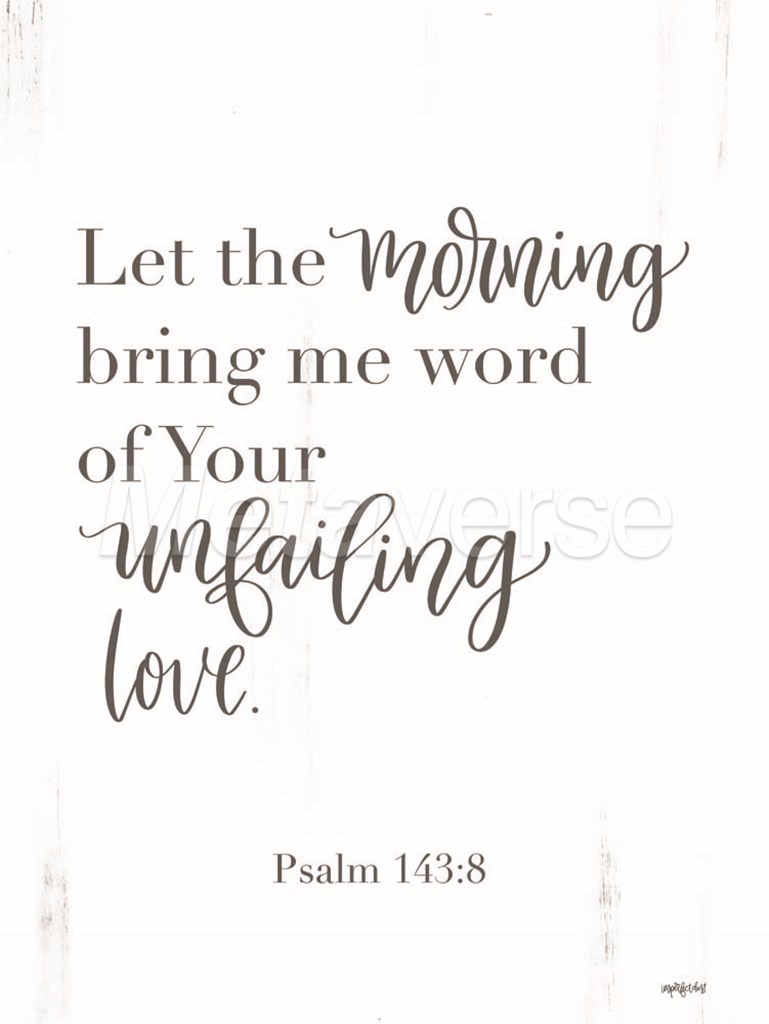 Let the morning
bring me word
of Your
Metaverse
unfailing
love.
Psalm 143:8
imperfect dust